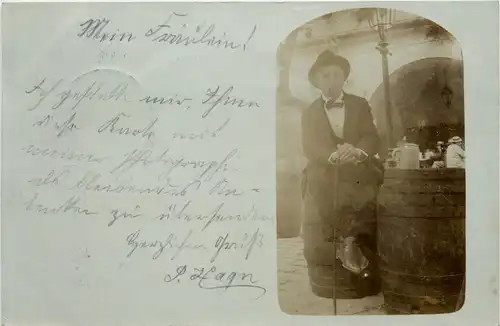 Mein Fräulein!
Ich gestatte mir, Ihnen
diese Karte mit
meiner Photographi
als bleibendes An-
denken zu übersenden
Herzlichen Gruß
P. Hagn